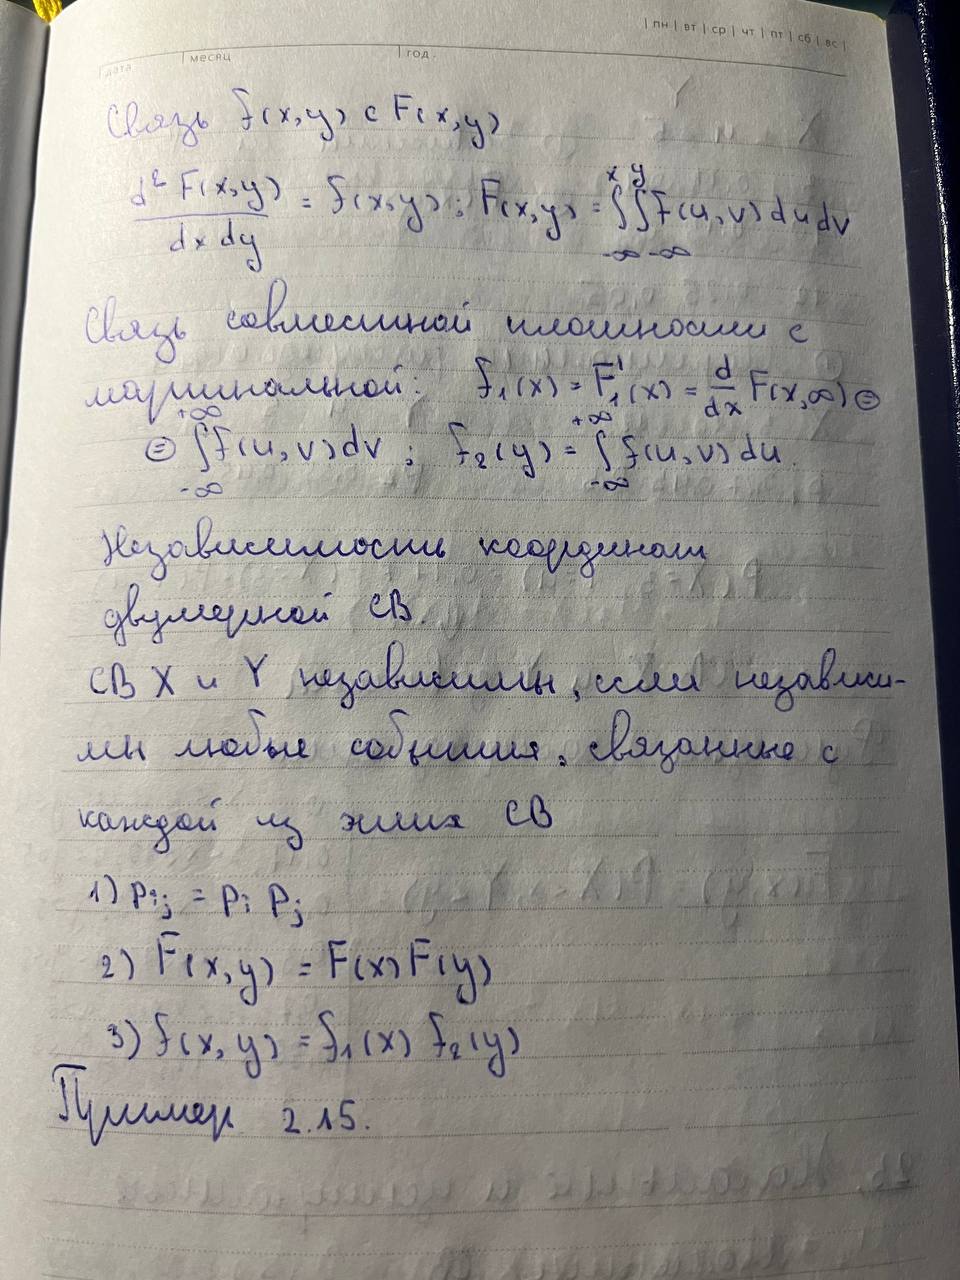 | пн | вт | ср | чт | пт | сб | вс |
дата | месяц | год
Связь f(x,y) с F(x,y)
d² F(x,y) / dx dy = f(x,y); F(x,y) = ∫_{-∞}^{x} ∫_{-∞}^{y} f(u,v) du dv
Связь совместной плотности с
маргинальной: f₁(x) = F₁'(x) = d/dx F(x,∞) ⊜
⊜ ∫_{-∞}^{+∞} f(u,v) dv ; f₂(y) = ∫_{-∞}^{+∞} f(u,v) du.
Независимость координат
двумерной СВ.
СВ X и Y независимы, если независи-
мы любые события, связанные с
каждой из этих СВ
1) Pij = Pi Pj
2) F(x,y) = F(x) F(y)
3) f(x,y) = f₁(x) f₂(y)
Пример 2.15.